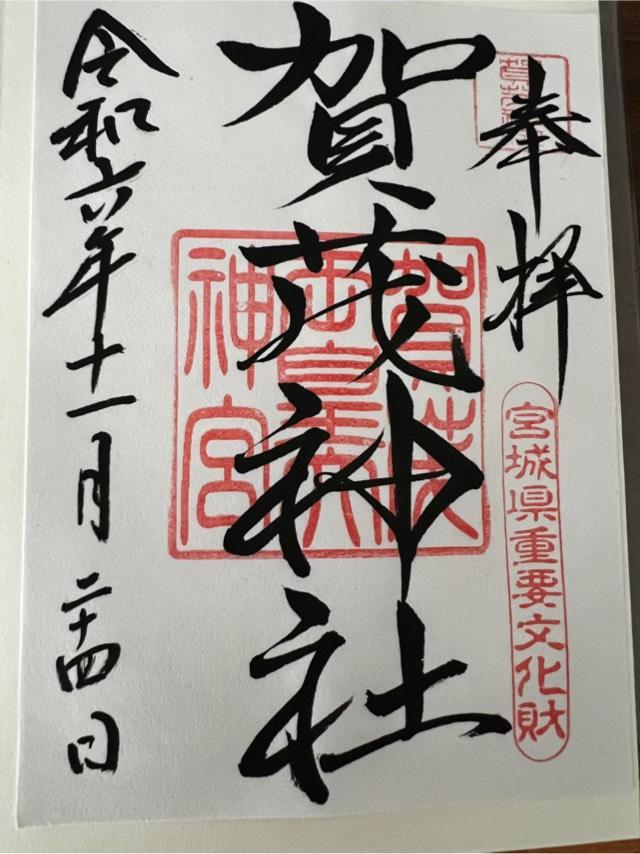 奉拝
宮城県重要文化財
賀茂神社
令和六年十一月二十四日